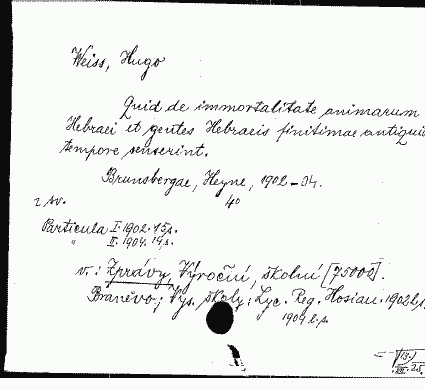 Weiss, Hugo
Quid de immortalitate animarum
Hebraei et gentes Hebraeis finitimae antiquis
tempore senserint.
Brunsbergae, Heyne, 1902-04.
2 sv. 4°
Particula I. 1902. 15 s.
" II. 1904. 14 s.
v.: Zprávy, Výroční, školní [75000].
Braněvo; Vys. školy; Lyc. Reg. Hosian. 1902
1904